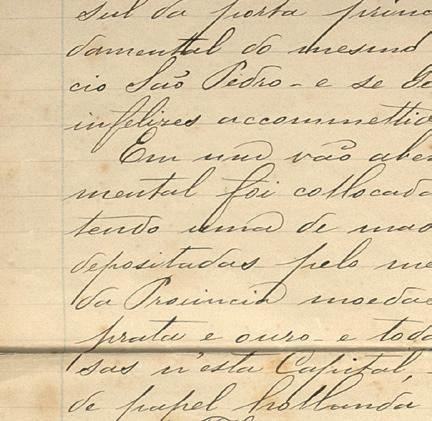 sul da porta princ
damental do mesmo
cio São Pedro - e se de
infelizes accommettid
Em um vão aber
mental foi collocada
tendo uma de mad
depositadas pelo me
da Provincia moedas
prata e ouro - e toda
sas n'esta Capital,
de papel hollanda